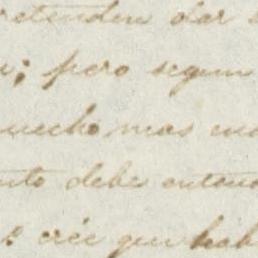 retenden dar
; pero segun
mucho mas
nto debe entonc
: crée que hab